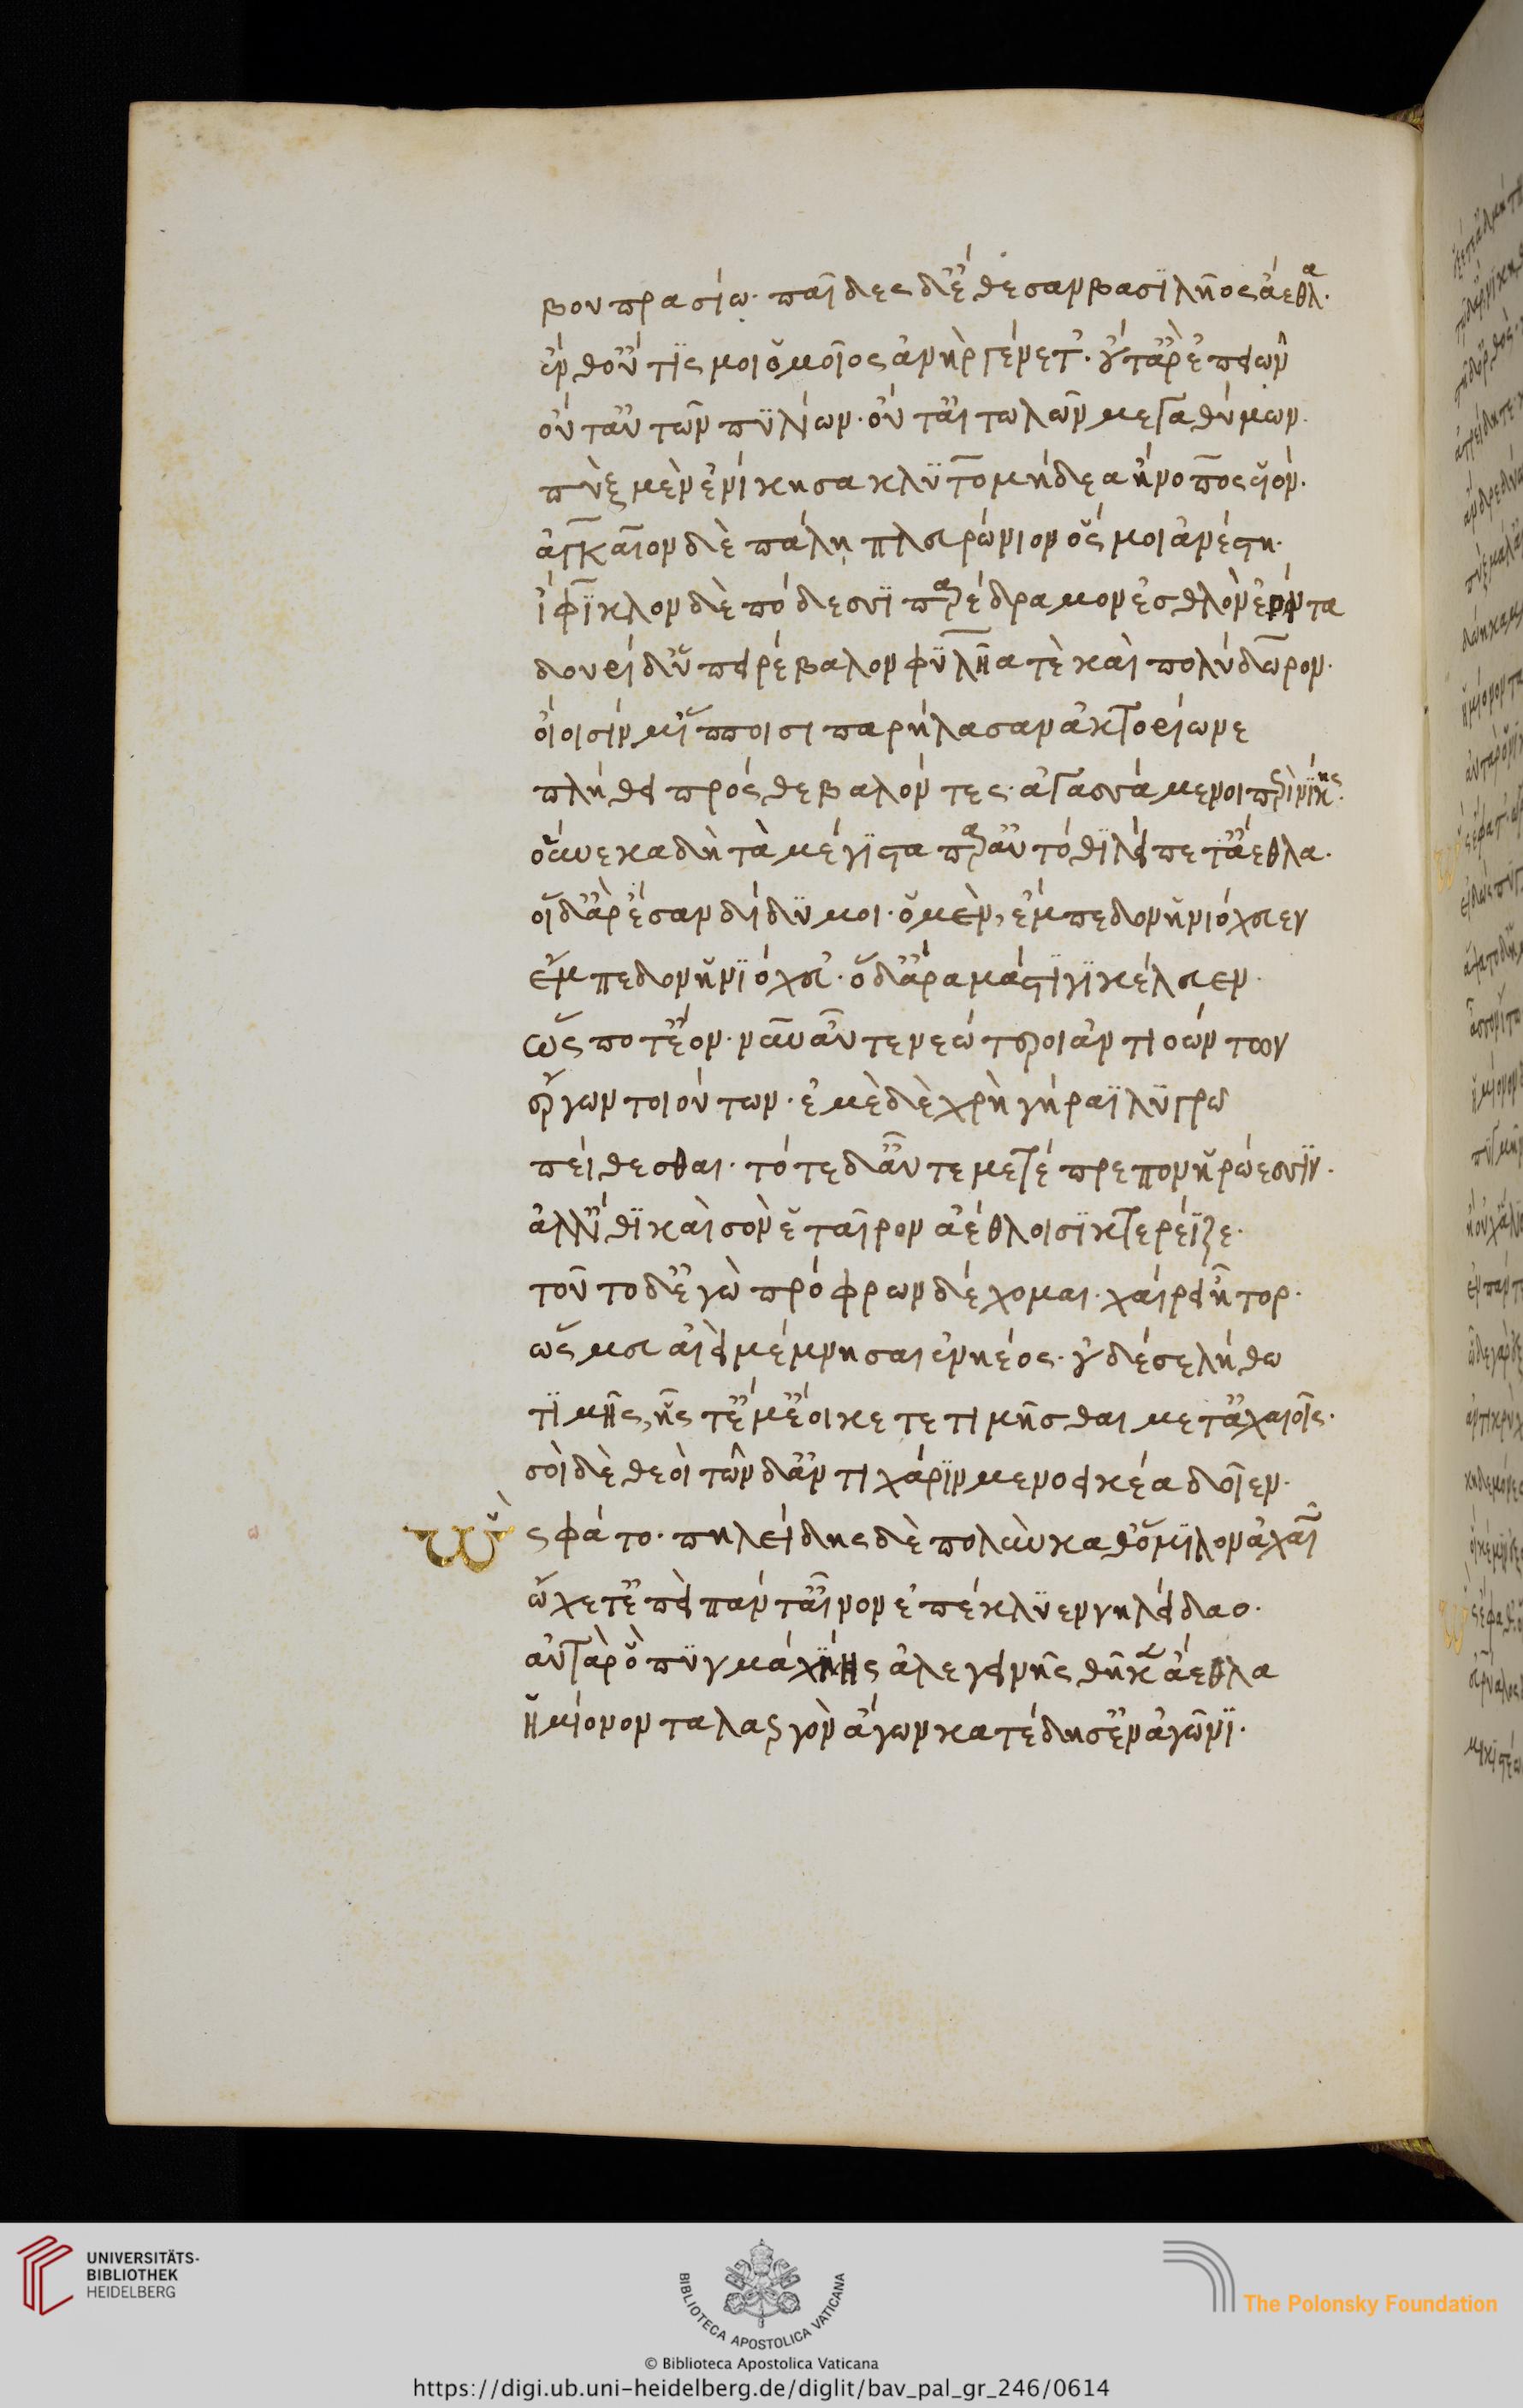 βουπρασίω· παῖδες δ' ἔθεσαν βασιλῆος ἄεθλα·
ἔνθ' οὔ τίς μοι ὁμοῖος ἀνὴρ γένετ'· οὔτ' ἄρ' ἐπειῶν
οὔτ' αὐτῶν πυλίων· οὔτ' αἰτωλῶν μεγαθύμων·
πὺξ μὲν ἐνίκησα κλυτομήδεα ἤνοπος υἱόν·
ἀγκαῖον δὲ πάλῃ πλευρώνιον ὅς μοι ἀνέστη·
ἴφικλον δὲ πόδεσσι παρέδραμον ἐσθλὸν ἐόντα
δουρὶ δ' ὑπειρέβαλον φυλῆα τὲ καὶ πολύδωρον·
οἴοισίν μ' ἵπποισι παρήλασαν ἀκτορίωνε
πλήθει πρόσθε βαλόντες· ἀγασσάμενοι περὶ νίκης·
οὕνεκα δὴ τὰ μέγιστα παρ' αὐτόθι λείπετ' ἄεθλα·
οἱ δ' ἄρ' ἔσαν δίδυμοι· ὁ μὲν, ἔμπεδον ἡνιόχευεν
ἔμπεδον ἡνιόχευ'· ὁ δ' ἄρα μάστιγι κέλευεν·
ὥς ποτ' ἔον· νῦν αὖτε νεώτεροι ἀντιοώντων
ἔργων τοιούτων· ἐμὲ δὲ χρὴ γήραϊ λυγρῶ
πείθεσθαι· τότε δ' αὖτε μετέπρεπον ἡρώεσσιν·
ἀλλ' ἴθι καὶ σὸν ἑταῖρον ἀέθλοισι κτερέϊζε·
τοῦτο δ' ἐγὼ πρόφρων δέχομαι· χαίρει ἦτορ·
ὥς μευ αἰεὶ μέμνησαι ἐνηέος· οὐδέ σε λήθω
τιμῆς, ἧς τέ μ' ἔοικε τετιμῆσθαι μετ' ἀχαιοῖς·
σοὶ δὲ θεοὶ τῶνδ' ἀντὶ χάριν μενοεικέα δοῖεν·
Ὣς φάτο· πηλείδης δὲ πολὺν καθ' ὅμιλον ἀχαιῶν
ᾤχετ' ἐπεὶ πάντ' αἶνον ἐπέκλυεν νηλείδαο·
αὐτὰρ ὁ πυγμαχίης ἀλεγεινῆς θῆκεν ἄεθλα
ἡμίονον ταλαεργὸν ἄγων κατέδησ' ἐν ἀγῶνι·
UNIVERSITÄTS-
BIBLIOTHEK
HEIDELBERG
BIBLIOTECA APOSTOLICA VATICANA
The Polonsky Foundation
© Biblioteca Apostolica Vaticana
https://digi.ub.uni-heidelberg.de/diglit/bav_pal_gr_246/0614